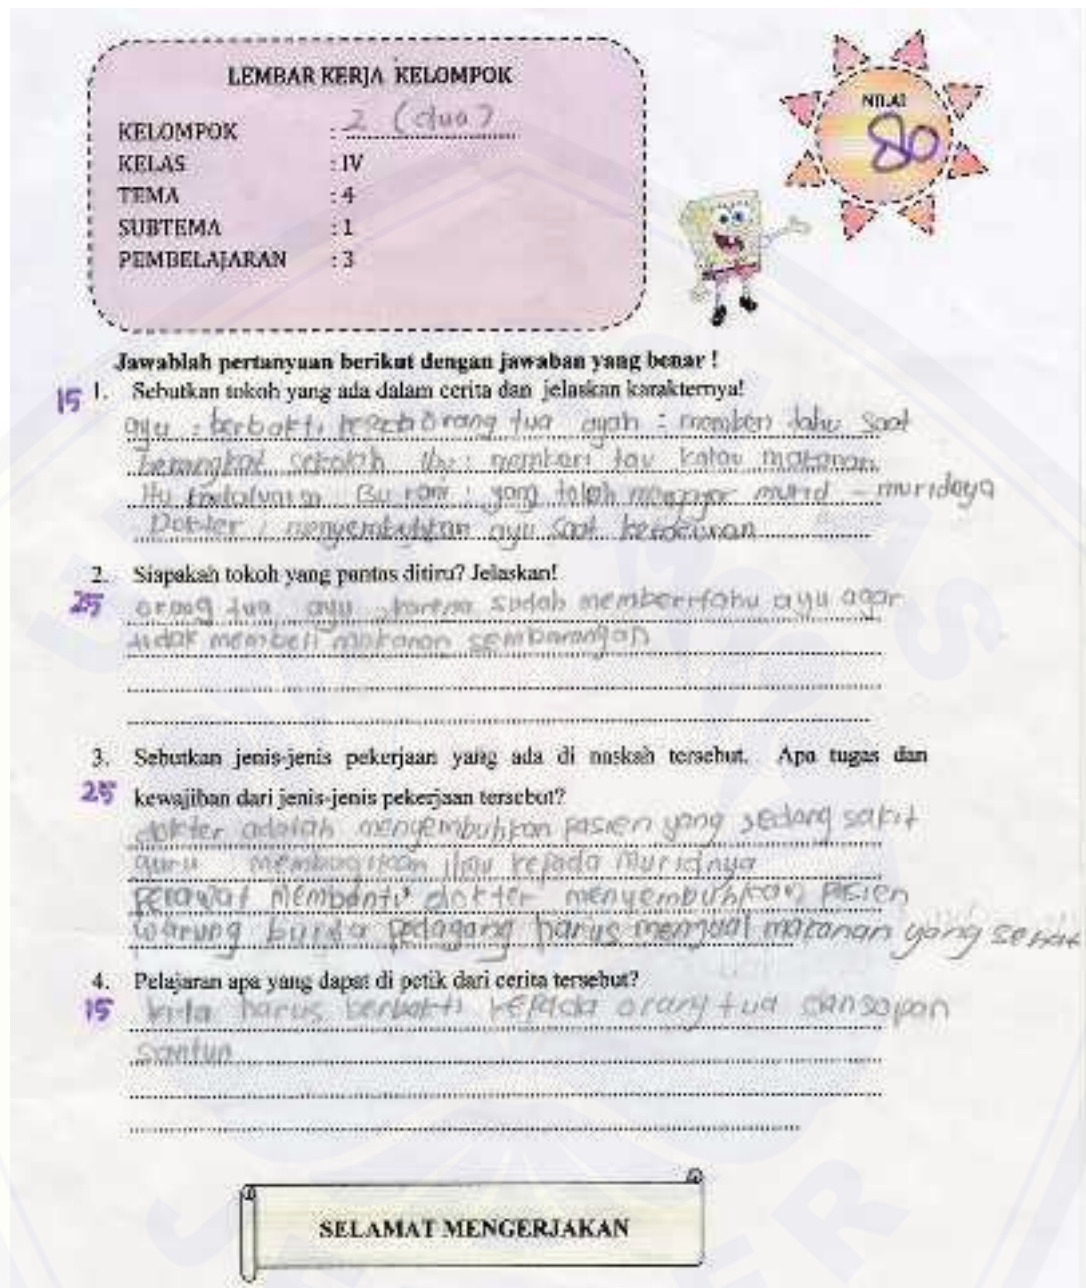 LEMBAR KERJA KELOMPOK
KELOMPOK : 2 (dua)
KELAS : IV
TEMA : 4
SUBTEMA : 1
PEMBELAJARAN : 3
NILAI
80
Jawablah pertanyaan berikut dengan jawaban yang benar !
15 1. Sebutkan tokoh yang ada dalam cerita dan jelaskan karakternya!
ayu : berbakti orang tua ayah : memberi tahu saat
berangkat sekolah Ibu : memberi tau kalau makanan
Bu rani : yang telah mengajar murid - muridnya
Dokter : menyembuhkan ayu saat
2. Siapakah tokoh yang pantas ditiru? Jelaskan!
25 orang tua ayu, karena sudah memberitahu ayu agar
tidak membeli makanan sembarangan
3. Sebutkan jenis-jenis pekerjaan yang ada di naskah tersebut. Apa tugas dan
25 kewajiban dari jenis-jenis pekerjaan tersebut?
dokter adalah menyembuhkan pasien yang sedang sakit
guru membagikan ilmu kepada Muridnya
perawat Membantu dokter menyembuhkan pasien
warung pedagang harus menjual makanan yang sehat
4. Pelajaran apa yang dapat di petik dari cerita tersebut?
15 kita harus berbakti kepada orang tua dan sopan
santun
SELAMAT MENGERJAKAN